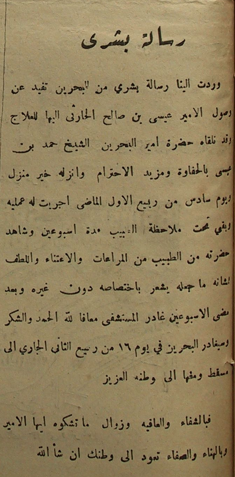 رسالة بشرى
وردت الينا رسالة بشري من البحرين تفيد عن
وصول الامير عيسى بن صالح الحارثى اليها للعلاج
وقد تلقاه حضرة أمير البحرين الشيخ حمد بن
عيسى بالحفاوة ومزيد الاحترام وانزله خير منزل
وبيوم سادس من ربيع الاول الماضى اجريت له عمليه
وبقي تحت ملاحظة الطبيب مدة اسبوعين وشاهد
حضرته من الطبيب من المراعات والاعتناء واللطف
بشانه ما جعله يشعر باختصاصه دون غيره وبعد
مضى الاسبوعين غادر المستشفى معافا لله الحمد والشكر
وسيغادر البحرين في يوم ١٦ من ربيع الثانى الجاري الى
مسقط ومنها الى وطنه العزيز
فبالشفاء والعافيه وزوال ما تشكوه ايها الامير
وبالهناء والصفاء تعود الى وطنك ان شأ الله